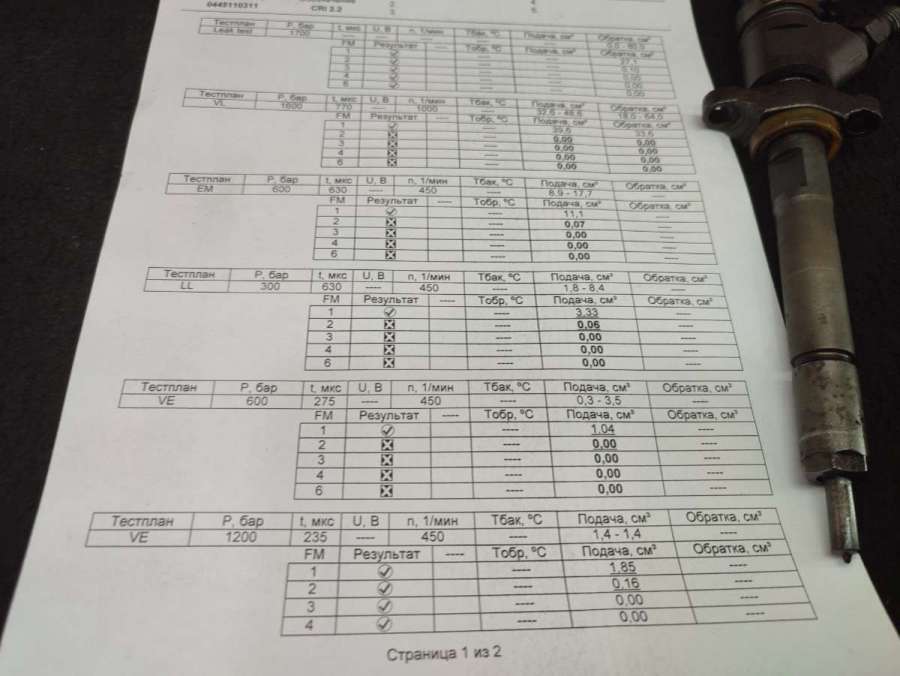 0445110311 CRI 2.2 2. 3. 4. 6.
Тестплан P, бар t, мкс U, В n, 1/мин Тбак, °C Подача, см³ Обратка, см³
Leak test 1700 ---- ---- ---- ---- ----
FM Результат ---- Тобр, °C Подача, см³ Обратка, см³
1 ---- ---- 27,1
2 ---- ----
3 ---- ----
4 ---- ---- 0,00
6 ---- ---- 0,00
Тестплан P, бар t, мкс U, В n, 1/мин Тбак, °C Подача, см³ Обратка, см³
VL 1600 770 ---- 1000 ----
FM Результат ---- Тобр, °C Подача, см³ Обратка, см³
1 ---- 39,6 33,6
2 ---- 0,00 0,00
3 ---- 0,00 0,00
4 ---- 0,00 0,00
6 ---- 0,00 0,00
Тестплан P, бар t, мкс U, В n, 1/мин Тбак, °C Подача, см³ Обратка, см³
EM 600 630 ---- 450 ---- 8,9 - 17,7 ----
FM Результат ---- Тобр, °C Подача, см³ Обратка, см³
1 ---- 11,1 ----
2 ---- 0,07 ----
3 ---- 0,00 ----
4 ---- 0,00 ----
6 ---- 0,00 ----
Тестплан P, бар t, мкс U, В n, 1/мин Тбак, °C Подача, см³ Обратка, см³
LL 300 630 ---- 450 ---- 1,8 - 8,4 ----
FM Результат ---- Тобр, °C Подача, см³ Обратка, см³
1 ---- 3,33 ----
2 ---- 0,06 ----
3 ---- 0,00 ----
4 ---- 0,00 ----
6 ---- 0,00 ----
Тестплан P, бар t, мкс U, В n, 1/мин Тбак, °C Подача, см³ Обратка, см³
VE 600 275 ---- 450 ---- 0,3 - 3,5 ----
FM Результат ---- Тобр, °C Подача, см³ Обратка, см³
1 ---- 1,04 ----
2 ---- 0,00 ----
3 ---- 0,00 ----
4 ---- 0,00 ----
6 ---- 0,00 ----
Тестплан P, бар t, мкс U, В n, 1/мин Тбак, °C Подача, см³ Обратка, см³
VE 1200 235 ---- 450 ---- 1,4 - 1,4 ----
FM Результат ---- Тобр, °C Подача, см³ Обратка, см³
1 ---- 1,85 ----
2 ---- 0,16 ----
3 ---- 0,00 ----
4 ---- 0,00 ----
Страница 1 из 2